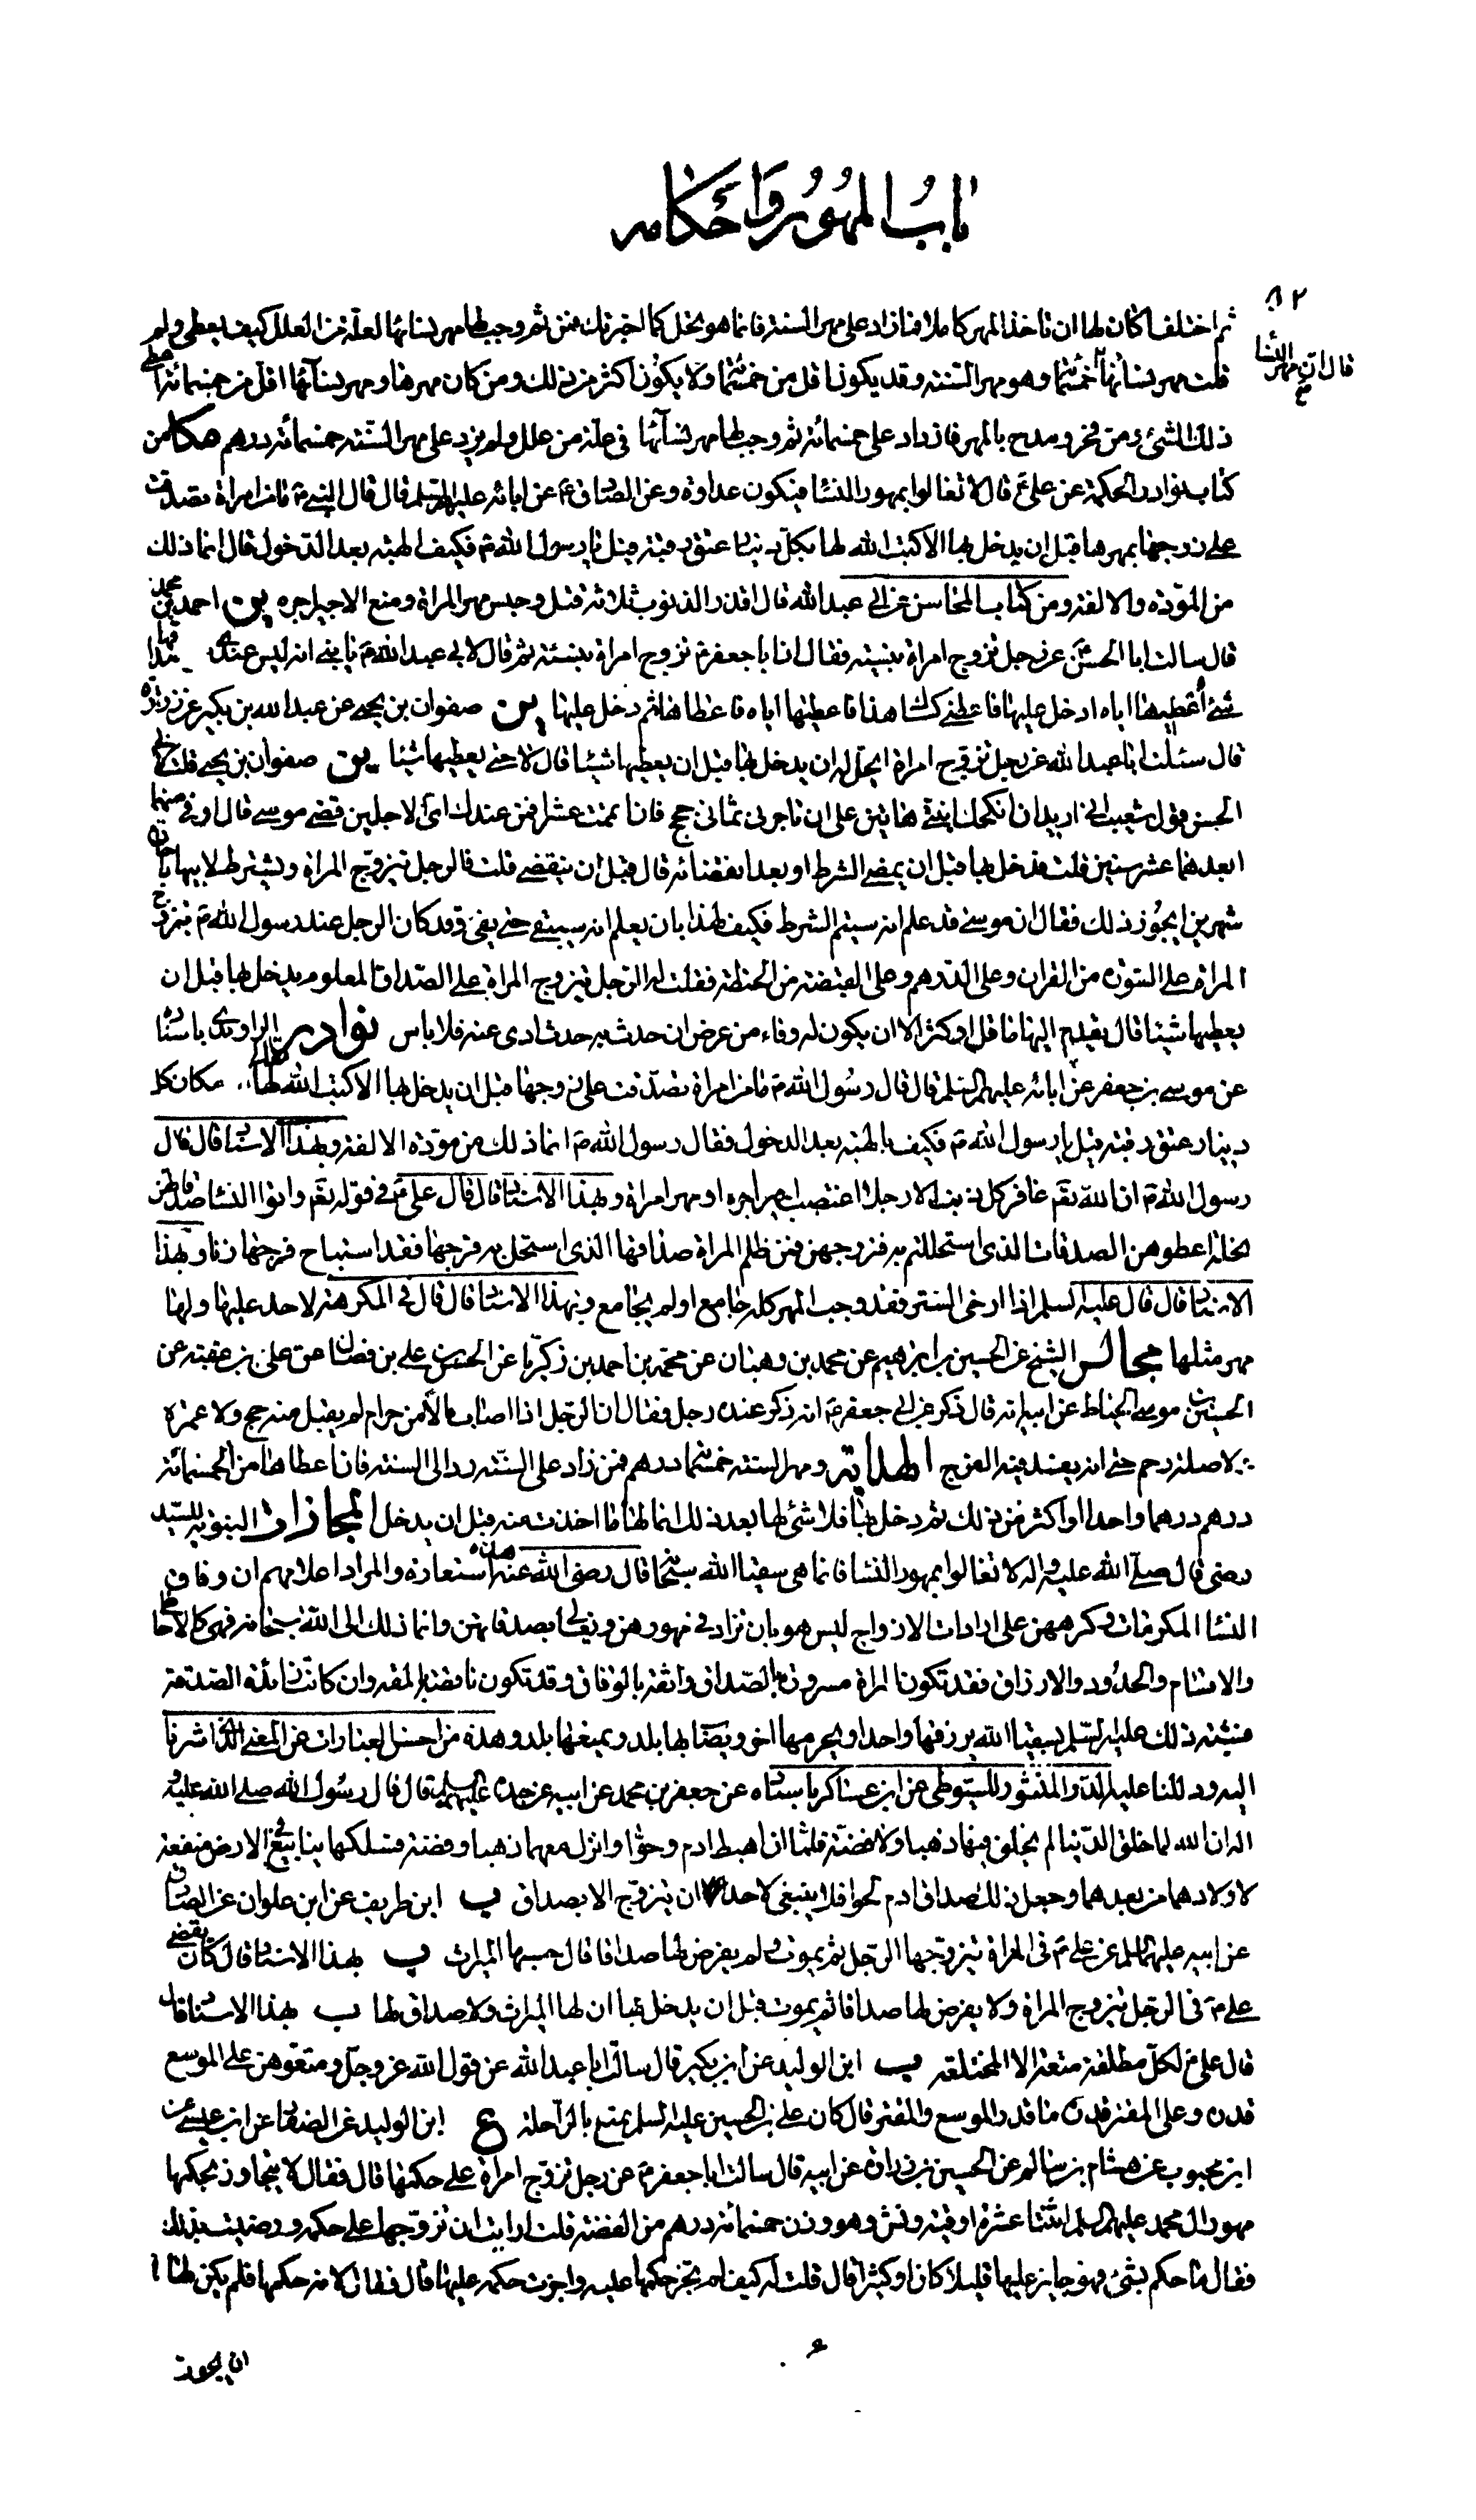 باب المهور وأحكامه
٨٢
ثم اختلفا كان لها ان تاخذ المهر كاملا فما زاد على مهر السنة فانما هو نحل كما اخبرتك فمن ثم وجب لها مهر نسائها لعلة من العلل كيف يعطى ولم
قال ان مهر النسا
قلت مهر نسائها خمسمائة وهو مهر السنة وقد يكون اقل من خمسمائة ولا يكون اكثر من ذلك ومن كان مهرها ومهر نسائها اقل من خمسمائة اعطى
ذلك الشئ ومن فخر ومدح بالمهر فازداد على خمسمائة ثم وجب لها مهر نسآئها في علة من علل ولم يزد على مهر السنة خمسمائة درهم مكا من
كتاب نوادر الحكمة عن علي ع قال لا تغالوا بمهور النسا فيكون عداوة وعن الصادق ع عن ابائه عليهم السلم قال قال النبي ص ما من امراة تصدقت
على زوجها بمهرها قبل ان يدخل بها الا كتب الله لها بكل دينار عتق رقبة قيل يا رسول الله ص فكيف الهبة بعد الدخول قال انما ذلك
من المودة والالفة ومن كتاب المحاسن عن ابي عبد الله قال اقذر الذنوب ثلاثة قتل وحبس مهر المراة ومنع الاجير اجره ين احمد بن محمد
قال سالت ابا الحسن ع عن رجل تزوج امراة بنسية فقال ان ابا جعفر ع تزوج امراة بنسئة ثم قال لابي عبد الله ع يا بني انه ليس عندي
شئ اعطيها اياه ادخل عليها فاعطني كساك هذا فاعطيها اياه فاعطاها ثم دخل عليها ين صفوان بن يحيى عن عبد الله بن بكير عن زرارة
قال سئلت ابا عبد الله عن رجل تزوج امراة ايحل له ان يدخل بها قبل ان يعطيها شيئا قال لا حتى يعطيها شيئا ين صفوان بن يحيى قلت لابي
الحسن قول شعيب اني اريد ان انكحك ابنتي هاتين على ان تاجرني ثماني حجج فان اتممت عشرا فمن عندك اى الاجلين قضى موسى قال اوفى منهما
ابعدهما عشر سنين قلت فدخل بها قبل ان يمضى الشرط او بعد انقضائه قال قبل ان ينقضي قلت فالرجل يتزوج المراة ويشترط لابيها اجارة
شهرين ايجوز ذلك فقال ان موسى قد علم انه سيتم الشرط فكيف لهذا بان يعلم انه سيبقى حتى يفى وقد كان الرجل عند رسول الله ص يتزوج
المراة على السورة من القران وعلى الدرهم وعلى القبضة من الحنطة فقلت له الرجل يتزوج المراة على الصداق المعلوم يدخل بها قبل ان
يعطيها شيئا قال يقدم اليها ما قل او كثر الا ان يكون له وفاء من عرض ان حدث به حدث ادى عنه فلا باس نوادر الراوندى باسناده
عن موسى بن جعفر عن ابائه عليهم السلم قال قال رسول الله ص ما من امراة تصدقت على زوجها قبل ان يدخل بها الا كتب الله لها مكان كل
دينار عتق رقبة قيل يا رسول الله ص فكيف بالهبة بعد الدخول فقال رسول الله ص انما ذلك من مودة الالفة وبهذا الاسناد قال قال
رسول الله ص ان الله تعم غافر كل ذنب الا رجل اغتصب اجيرا اجره او مهر امراة وبهذا الاسناد قال قال علي ع في قوله تعم واتوا النسا صدقاتهن
نحلة اعطوهن الصدقات الذى استحللتم به فزوجهن فمن ظلم المراة صداقها الذى استحل به فرجها فقد استباح فرجها زنا وبهذا
الاسناد قال قال عليه السلم اذا ارخى الستر فقد وجب المهر كله جامع او لم يجامع وبهذا الاسناد قال قال في المكرهة لاحد عليها ولها
مهر مثلها مجالس الشيخ عن الحسين بن ابراهيم عن محمد بن وهبان عن محمد بن احمد بن زكريا عن الحسن بن علي بن فضال عن علي بن عقبة عن
الحسين بن موسى الحناط عن ابيه قال ذكر عن ابي جعفر ع انه ذكر عنده رجل فقال ان الرجل اذا اصاب مالا من حرام لم يقبل منه حج ولا عمرة
ولا صلة رحم حتى انه يفسد فيه الفرج الهداية ومهر السنة خمسمائة درهم فمن زاد على السنة رد الى السنة فان اعطاها من الخمسمائة
درهم درهما واحدا او اكثر من ذلك ثم دخل بها فلا شئ لها بعد ذلك انما لها ما اخذت منه قبل ان يدخل المجازات النبوية للسيد
رضى قال صلى الله عليه واله لا تغالوا بمهور النسا فانما هي سقيا الله سبحانه قال رضى الله عنه هذه استعارة والمراد اعلامهم ان وفاق
النسا المكرمات وكرههن على ارادات الازواج ليس هو بان تزاد في مهورهن ويغالى بصدقاتهن وانما ذلك الى الله سبحانه فهى كالاحاظى
والاقسام والجدود والارزاق فقد تكون المراة مسرورة بالصداق واثقة بالوفاق وقد تكون ناقصة المقة وان كانت زائدة الصدقة
فشبه ذلك عليه السلم بسقيا الله يرزقها واحدا ويحرمها اخر ويصاب بها بلد ويمنعها بلد وهذه من احسن العبارات عن المعنى الذى اشرنا
اليه ودللنا عليه الدر المنثور للسيوطي عن ابن عساكر باسناده عن جعفر بن محمد عن ابيه عن جده عليهم السلم قال قال رسول الله صلى الله عليه و
اله ان الله لما خلق الدنيا لم يخلق فيها ذهبا ولا فضة فلما ان اهبط ادم وحوا وانزل معهما ذهبا وفضة فسلكها ينابيع في الارض منفعة
لاولادهما من بعدهما وجعل ذلك صداق ادم لحوا فلا ينبغي لاحد ان يتزوج الا بصداق ب ابن طريف عن ابن علوان عن الصادق
عن ابيه عليهما السلم عن علي ع في المراة يتزوجها الرجل ثم يموت ولم يفرض لها صداقا قال حسبها الميراث ب بهذا الاسناد قال كان يقضى
علي ع في الرجل يتزوج المراة ولا يفرض لها صداقا ثم يموت قبل ان يدخل بها ان لها الميراث ولا صداق لها ب بهذا الاسناد قال
قال علي ع لكل مطلقة متعة الا المختلعة ب ابن الوليد عن ابن بكير قال سالت ابا عبد الله عن قول الله عز وجل ومتعوهن على الموسع
قدره وعلى المقتر قدره ما قدر الموسع والمقتر قال كان علي بن الحسين عليه السلم يمتع بالراحلة ع ابن الوليد عن الصفار عن ابن عيسى عن
ابن محبوب عن هشام بن سالم عن الحسين بن زرارة عن ابيه قال سالت ابا جعفر ع عن رجل تزوج امراة على حكمها قال فقال لا يتجاوز بحكمها
مهور ال محمد عليهم السلم اثنتا عشرة اوقية ونش وهو وزن خمسمائة درهم من الفضة قلت ارايت ان تزوجها على حكمه ورضيت بذلك
فقال ما حكم بشئ فهو جايز عليها قليلا كان او كثيرا قال قلت له كيف لم تجز حكمها عليه واجزت حكمه عليها قال فقال لانه حكمها فلم يكن لها
ان يجوز